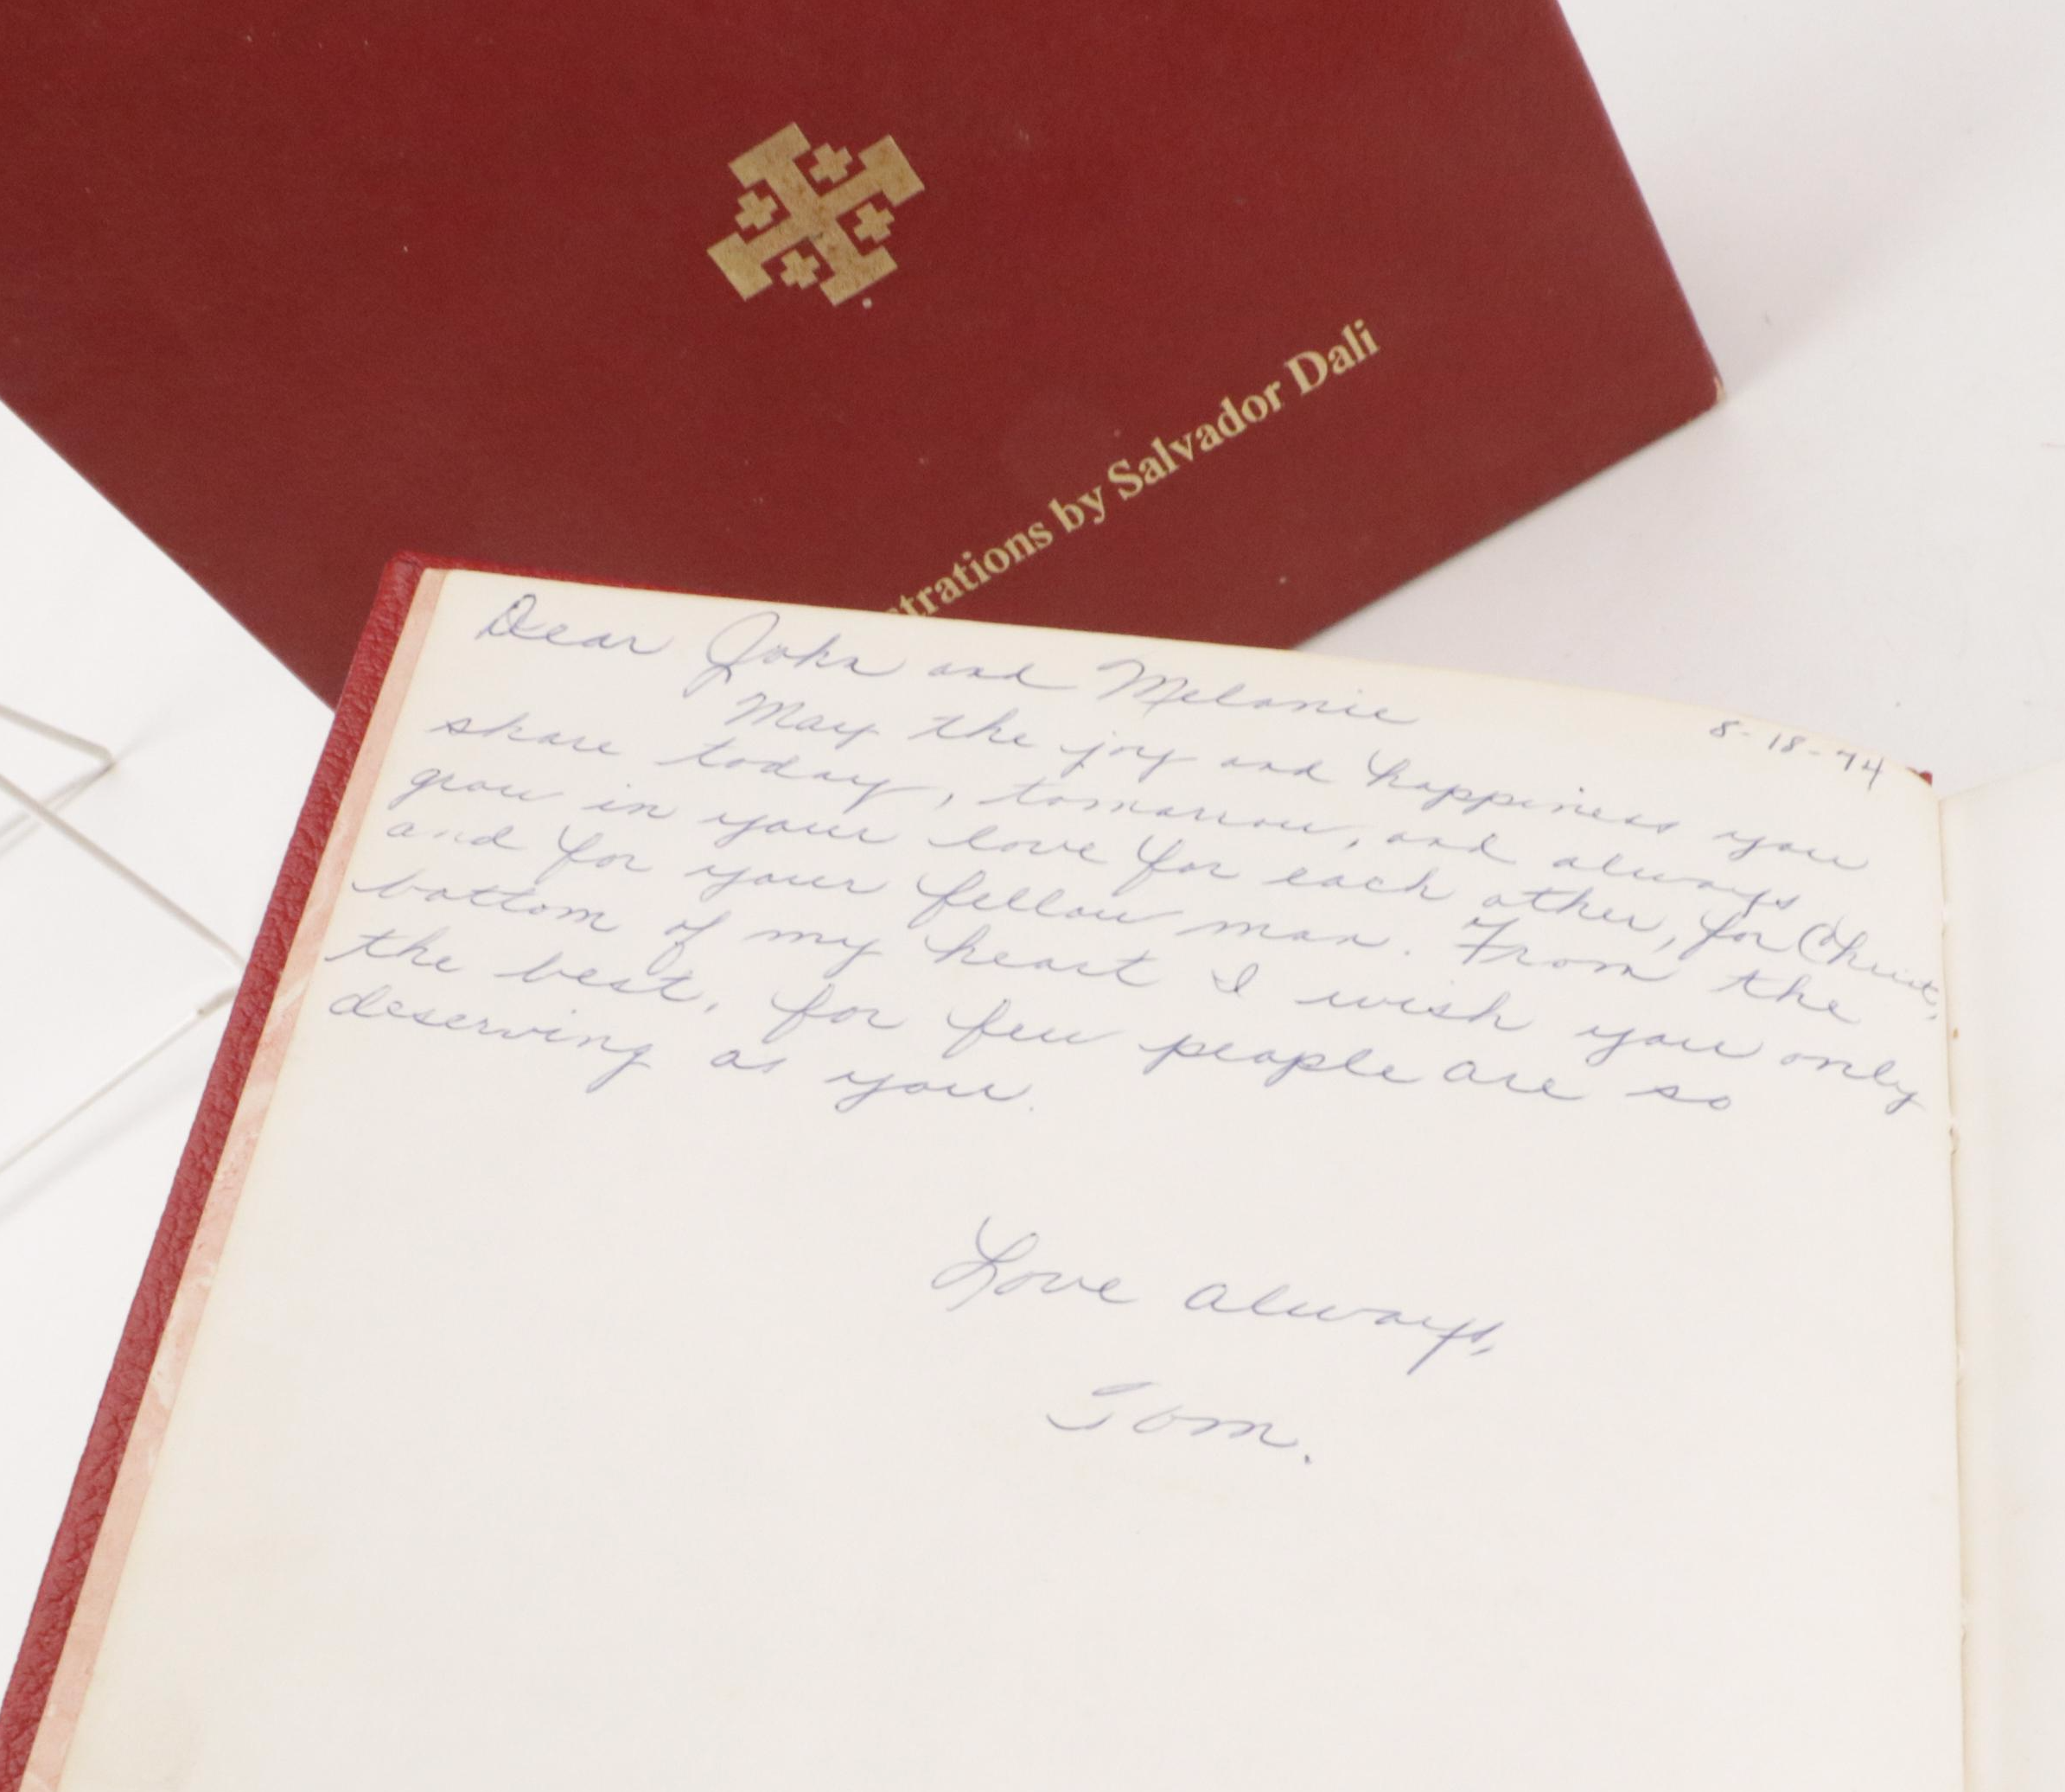 strations by Salvador Dali
8-18-74
Dear John and Melanie
May the joy and happiness you
share today, tomorrow, and always
grow in your love for each other, for Christ,
and for your fellow man. From the
bottom of my heart I wish you only
the best, for few people are so
deserving as you.
Love always,
Tom.